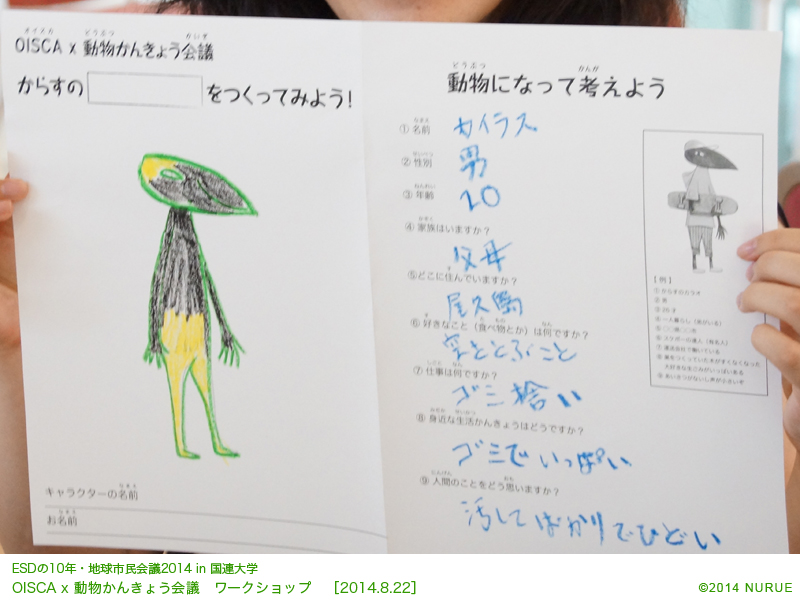 オイスカ どうぶつ かいぎ
OISCA x 動物かんきょう会議
からすの をつくってみよう!
キャラクターの名前
お名前
どうぶつ かんが
動物になって考えよう
① 名前 カイラス
② 性別 男
③ 年齢 20
④ 家族はいますか?
父母
⑤どこに住んでいますか?
屋久島
⑥ 好きなこと(食べ物とか)は何ですか?
空をとぶこと
⑦ 仕事は何ですか?
ゴミ拾い
⑧ 身近な生活かんきょうはどうですか?
ゴミでいっぱい
⑨ 人間のことをどう思いますか?
汚してばかりでひどい
【例】
① からすのカラオ
② 男
ESDの10年・地球市民会議2014 in 国連大学
OISCA x 動物かんきょう会議 ワークショップ [2014.8.22]
©2014 NURUE